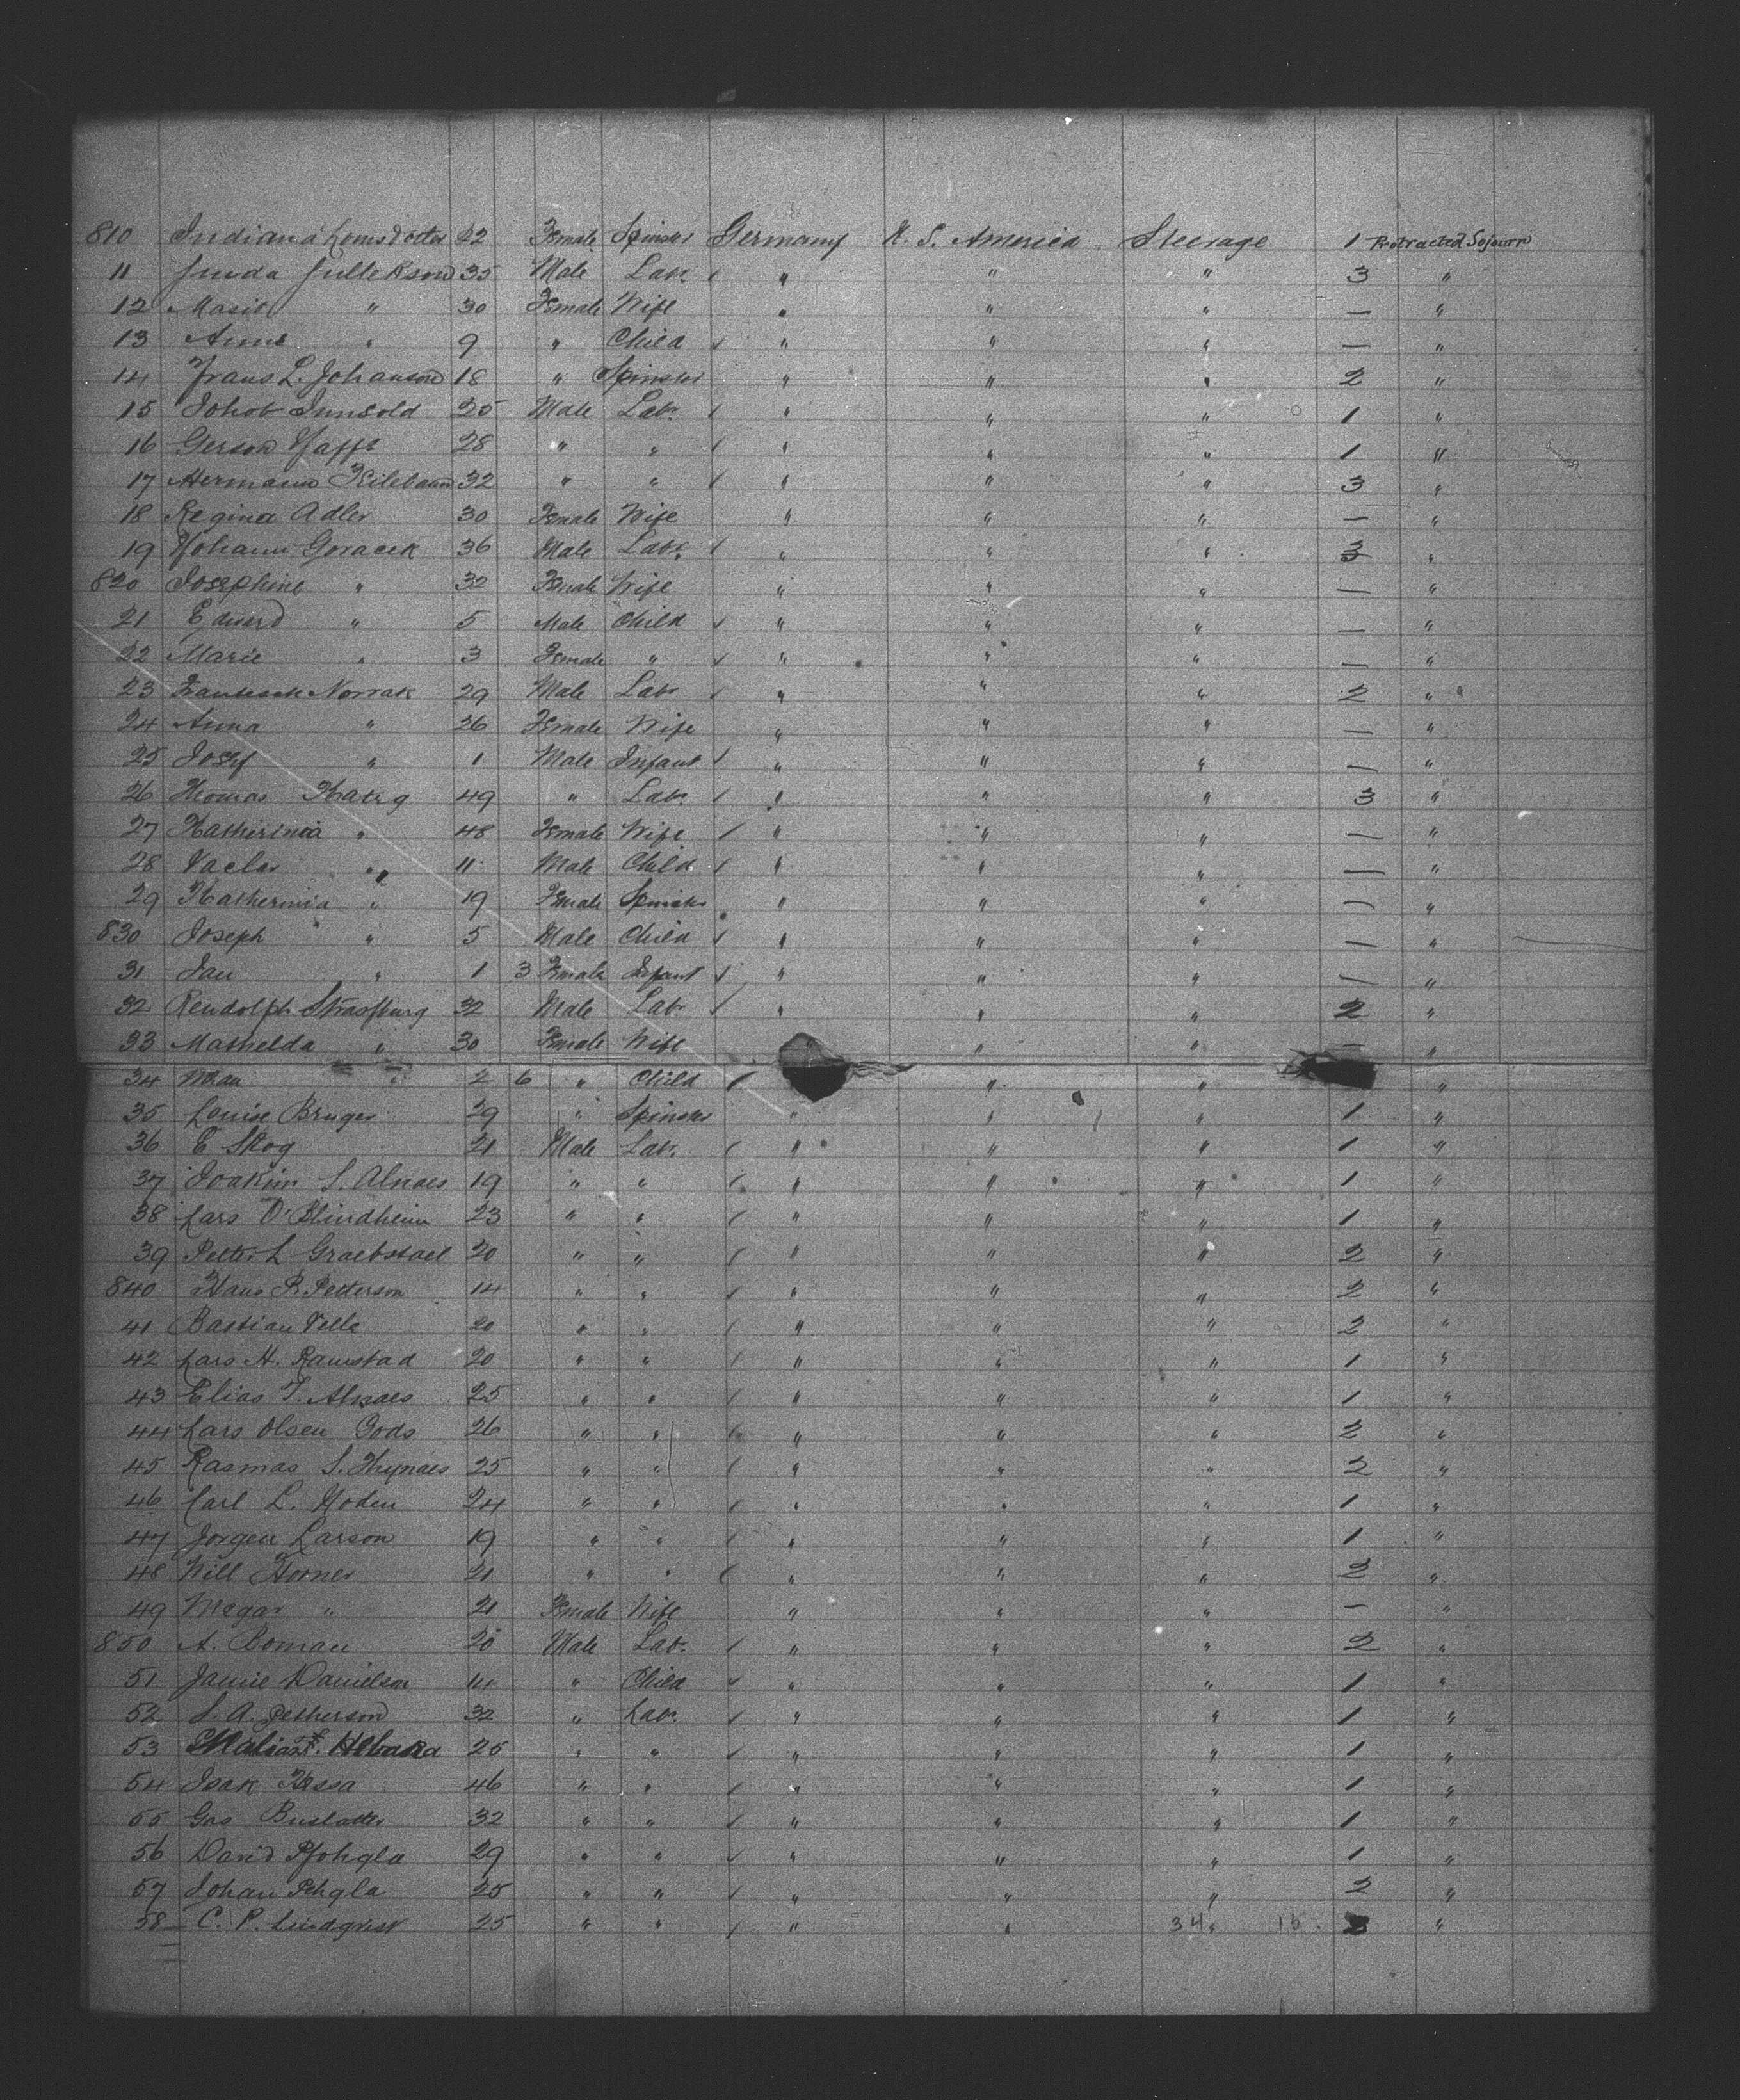 810 Indiana Lonsdotter 22 Female Spinster Germany U. S. America Steerage 1 Protracted Sojourn
11 Gullekson 35 Male Labr " " " 3 "
12 Marit " 30 Female Wife " " " — "
13 Anne " 9 " Child " " " — "
14 Frans L. Johanson 18 " Spinster " " " 2 "
15 Innsold 25 Male Labr " " " 1 "
16 Gerson Yaffe 28 " " " " " 1 "
17 Hermann 32 " " " " " 3 "
18 Regina Adler 30 Female Wife " " " — "
19 Johann Goracek 36 Male Labr " " " 3 "
820 Josephine " 32 Female Wife " " " — "
21 Eduard " 5 Male Child " " " — "
22 Marie " 3 Female " " " " — "
23 Norrak 29 Male Labr " " " 2 "
24 Anna " 26 Female Wife " " " — "
25 Josef " 1 Male Infant " " " — "
26 Thomas 49 " Labr " " " 3 "
27 Katherinia " 48 Female Wife " " " — "
28 Vaclav " 11 Male Child " " " — "
29 Katherinia " 19 Female Spinster " " " — "
830 Joseph " 5 Male Child " " " — "
31 Jan " 1 3 Female Infant " " " — "
32 Rendolph Strassburg 32 Male Labr " " " 2 "
33 Mathelda " 30 Female Wife " " — "
34 " 2 6 " Child " " "
35 Louise Bruger 29 " Spinster " " " 1 "
36 E Skog 21 Male Labr " " " 1 "
37 Joakim S. Alnaes 19 " " " " " 1 "
38 Lars O' Blindheim 23 " " " " " 1 "
39 Petter L Graebstael 20 " " " " " 2 "
840 Hans R. Petterson 14 " " " " " 2 "
41 Bastian Velle 20 " " " " " 2 "
42 Lars H. Ramstad 20 " " " " " 1 "
43 Elias T. Alnaes 25 " " " " " 1 "
44 Lars Olsen Gods 26 " " " " " 2 "
45 Rasmas S. Thynaes 25 " " " " " 2 "
46 Carl L. Hoden 24 " " " " " 1 "
47 Jorgen Larson 19 " " " " " 1 "
48 Will Horner 21 " " " " " 2 "
49 Megar " 21 Female Wife " " " — "
850 A. Boman 20 Male Labr " " " 2 "
51 Jannie Danielson 14 " Child " " " 1 "
52 S. A. Petherson 32 " Labr " " " 1 "
53 25 " " " " " 1 "
54 Isak Hessa 46 " " " " " 1 "
55 Gas Buslatter 32 " " " " " 1 "
56 David Pfohgla 29 " " " " " 1 "
57 Johan Pehgla 25 " " " " " 2 "
58 C. P. Lindqvist 25 " " " " 34 " 15 2 "